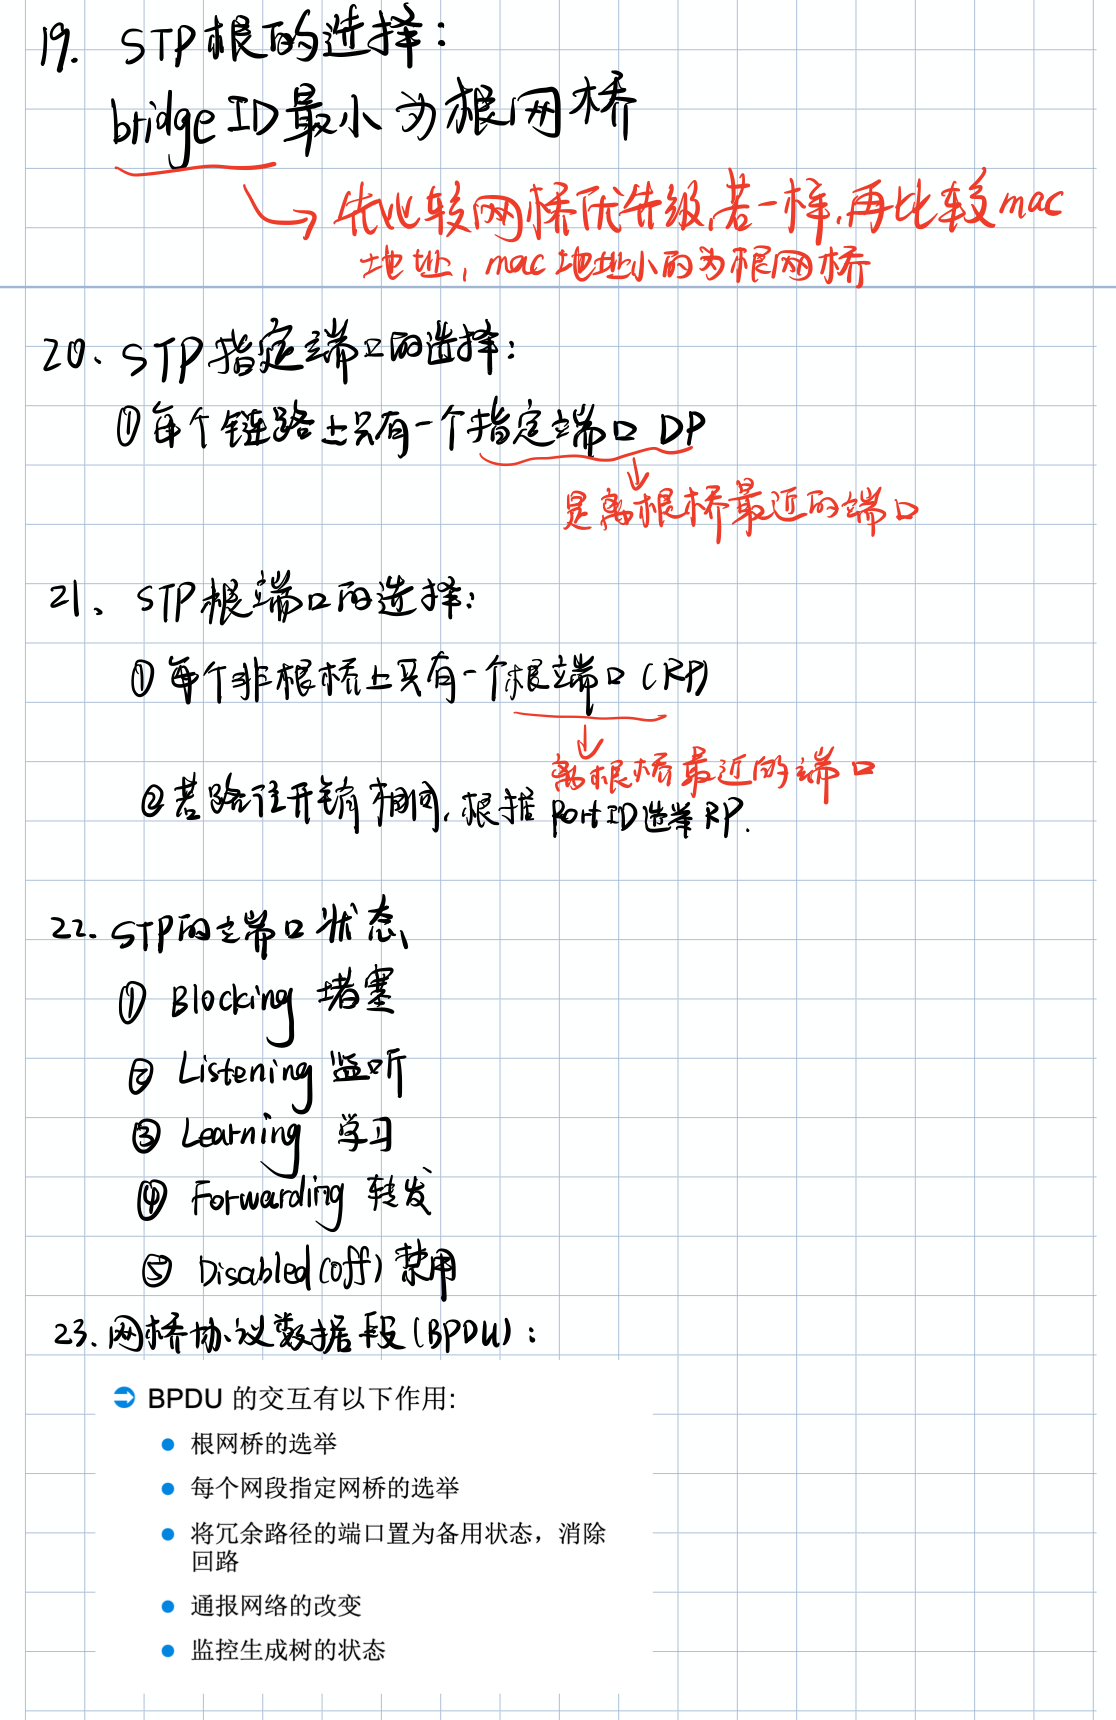 19. STP根的选择：
bridge ID最小为根网桥
先比较网桥优先级,若一样,再比较mac
地址，mac地址小的为根网桥
20、STP指定端口的选择：
①每个链路上只有一个指定端口 DP
是离根桥最近的端口
21、STP根端口的选择：
①每个非根桥上只有一个根端口（RP）
离根桥最近的端口
②若路径开销相同,根据 Port ID选举RP.
22. STP的端口状态
① Blocking 堵塞
② Listening 监听
③ Learning 学习
④ Forwarding 转发
⑤ Disabled(off) 禁用
23.网桥协议数据段(BPDU)：
BPDU 的交互有以下作用:
根网桥的选举
每个网段指定网桥的选举
将冗余路径的端口置为备用状态，消除
回路
通报网络的改变
监控生成树的状态